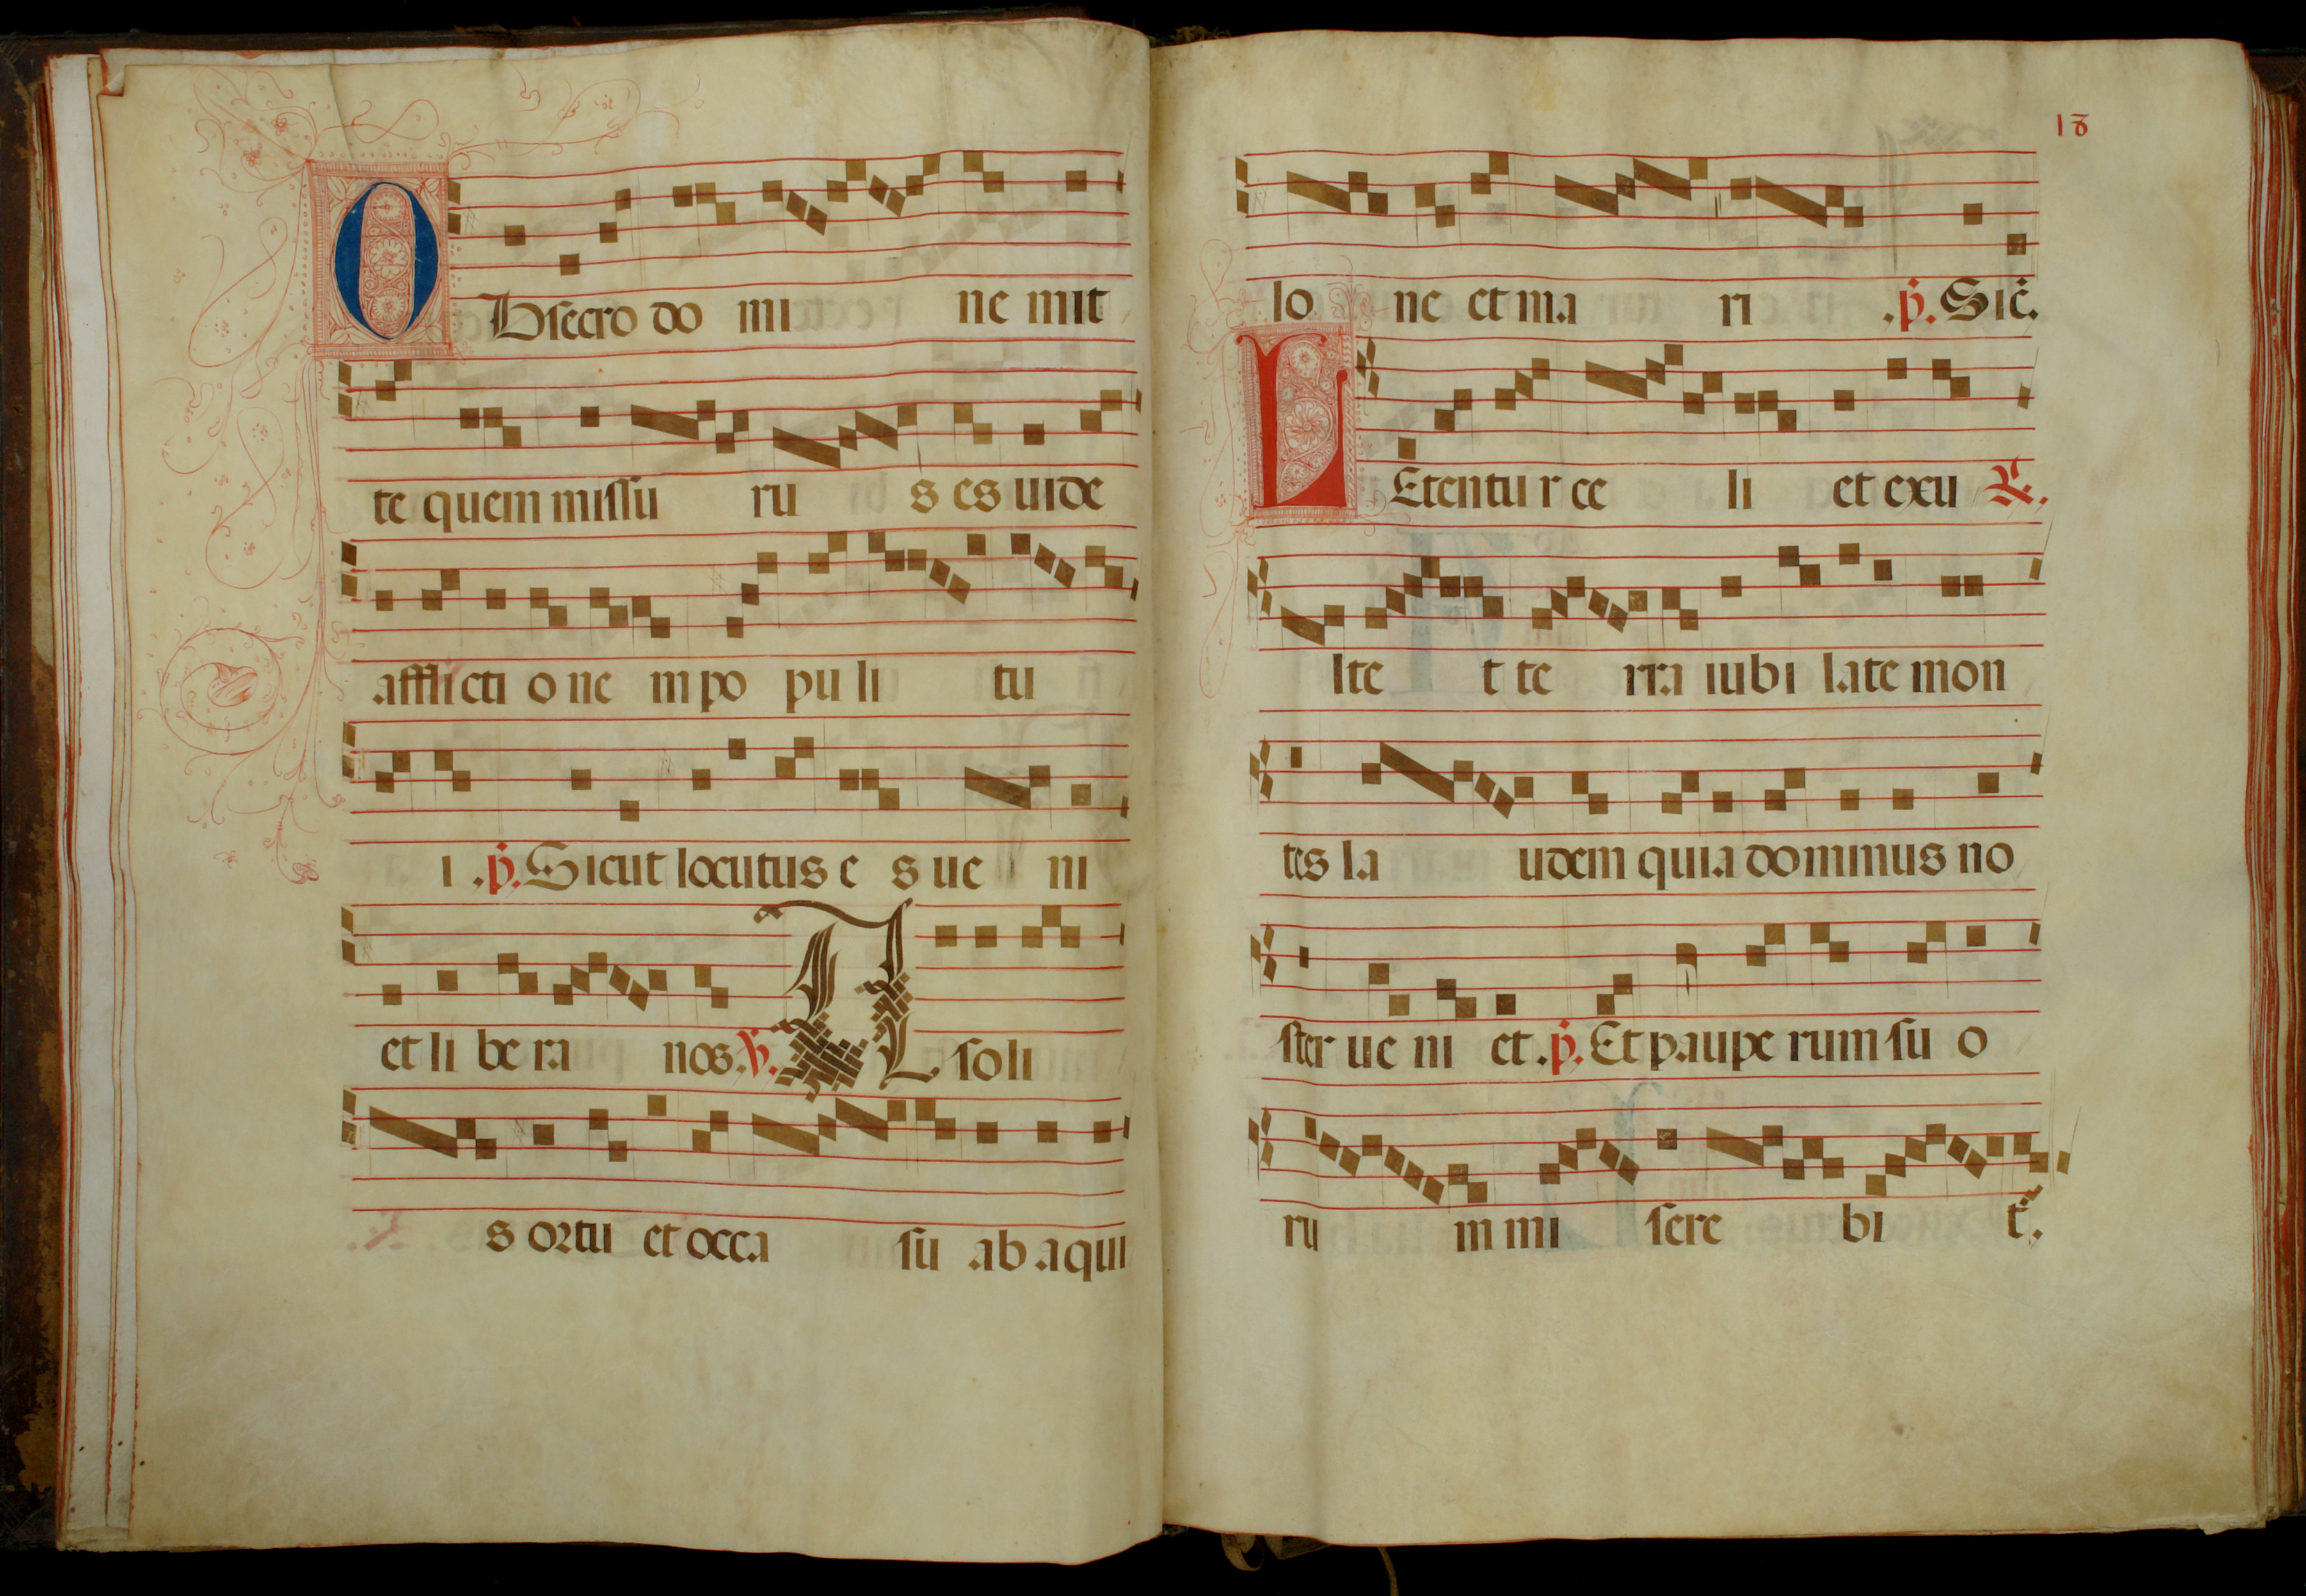 OBsecro do mi ne mit
te quem missu ru s es uide
afflicti o ne m po pu li tu
i .p. Sicut locutus e s ue ni
et li be ra nos. V. A soli
s ortu et occa su ab aqui
18
lo ne et ma ri .p. Sic.
LEtentur ce li et exu R.
lte t te rra iubi late mon
tes la udem quia dominus no
ster ue ni et .p. Et paupe rum su o
ru m mi sere bi t.